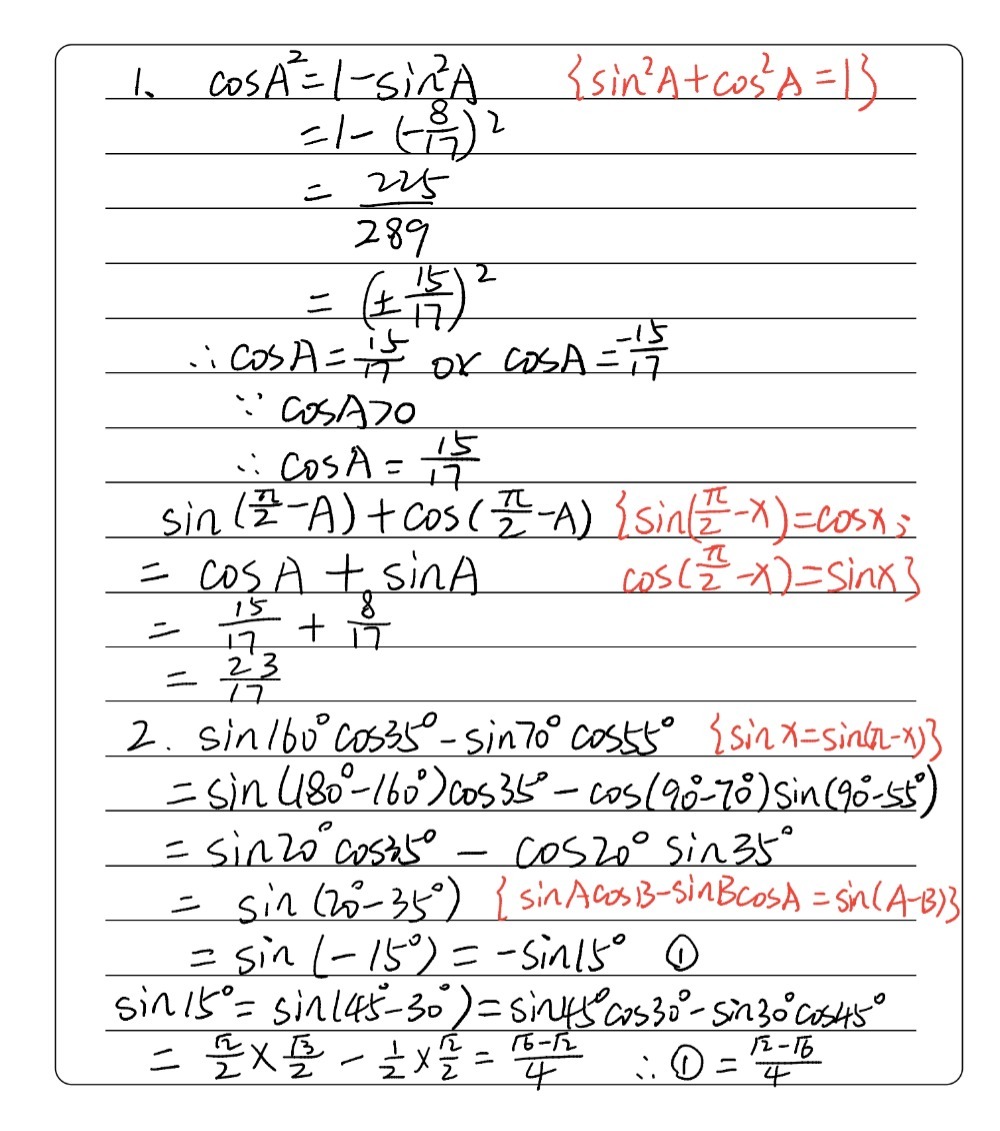 1、 cosA²=1-sin²A {sin²A+cos²A=1}
=1-(-8/17)²
= 225/289
= (±15/17)²
∴cosA=15/17 or cosA=-15/17
∵ cosA>0
∴ cosA=15/17
sin(π/2-A)+cos(π/2-A) {sin(π/2-x)=cosx;
= cosA+sinA cos(π/2-x)=sinx}
= 15/17 + 8/17
= 23/17
2. sin160°cos35°-sin70°cos55° {sinx=sin(π-x)}
=sin(180°-160°)cos35°-cos(90°-70°)sin(90°-55°)
=sin20°cos35° - cos20°sin35°
= sin(20°-35°) {sinAcosB-sinBcosA=sin(A-B)}
= sin(-15°)=-sin15° ①
sin15°=sin(45°-30°)=sin45°cos30°-sin30°cos45°
= √2/2×√3/2 - 1/2×√2/2 = √6-√2/4 ∴①=√2-√6/4